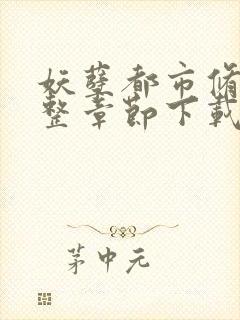 妖孽都市修
整章節下載
茅中元